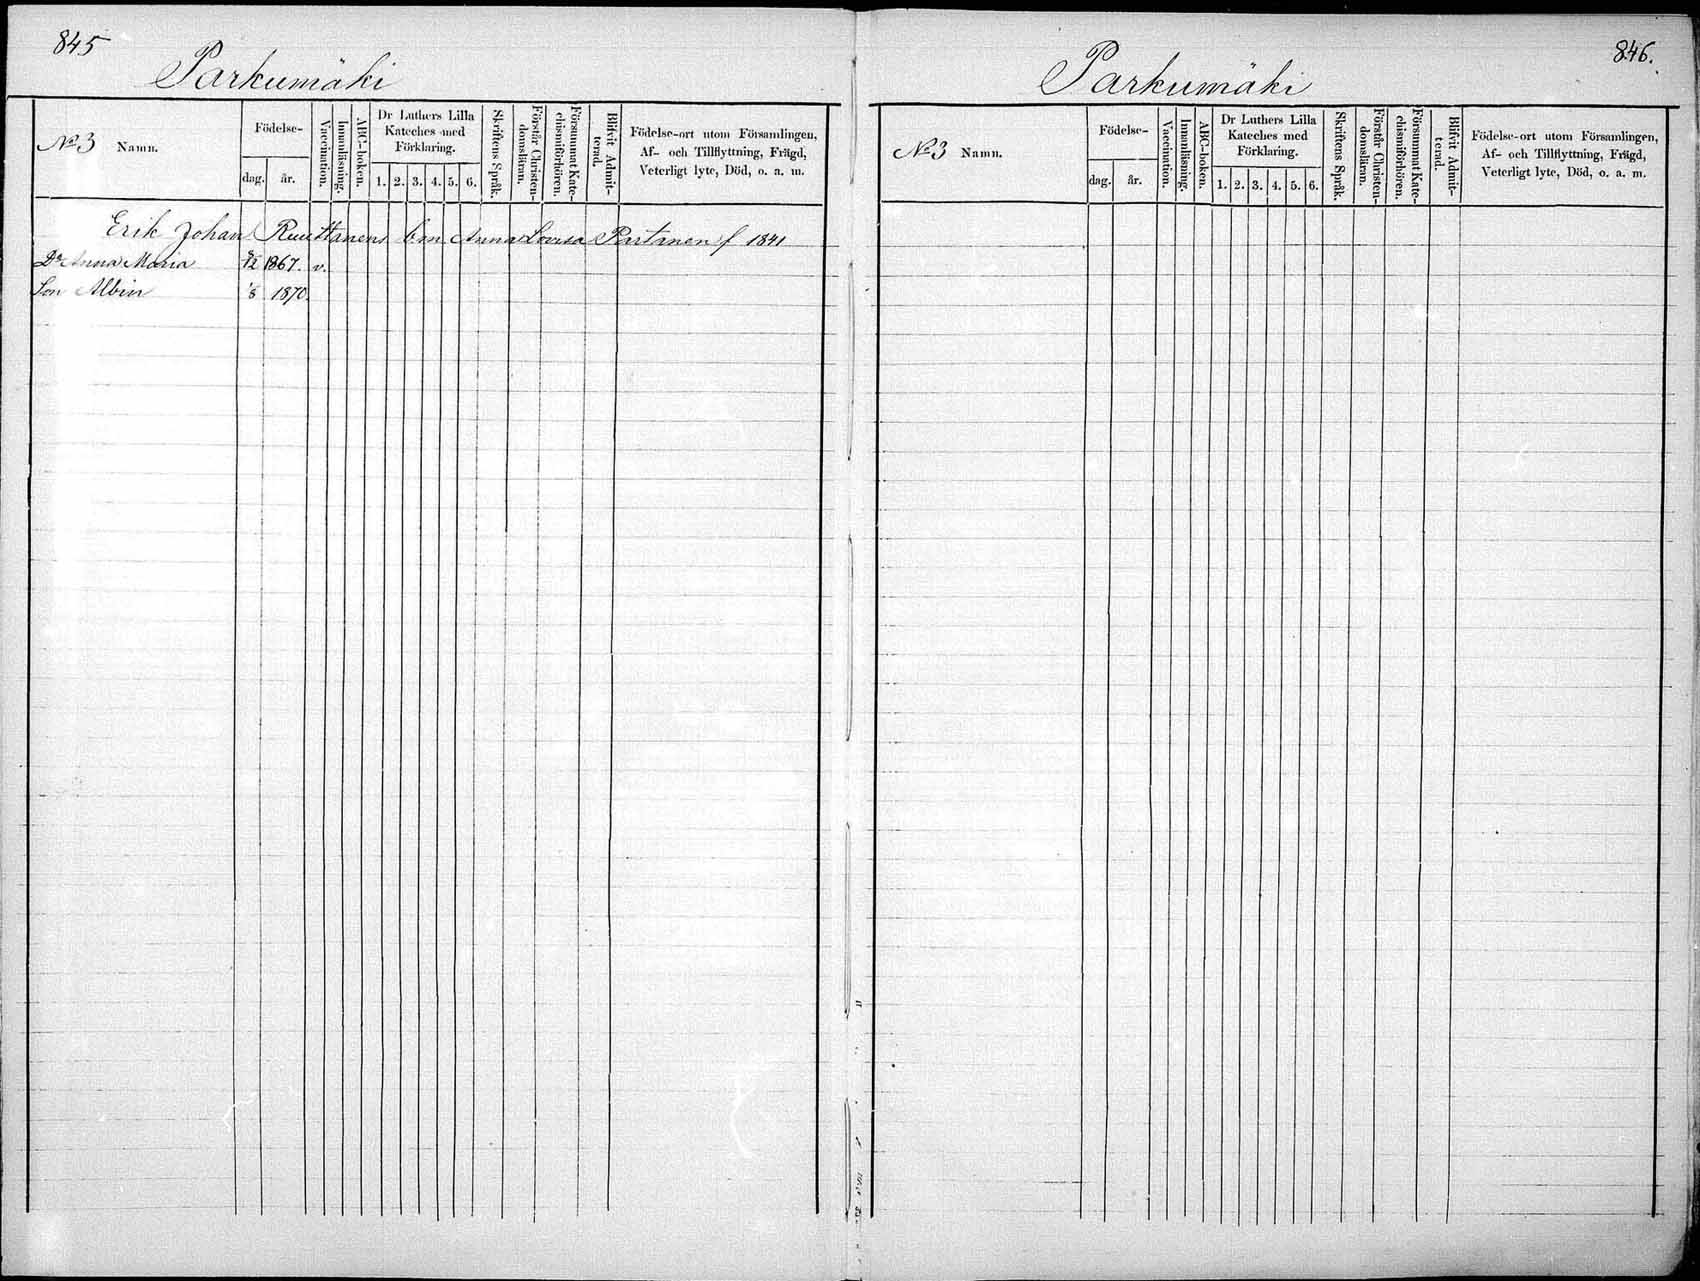 845
Parkumäki
No 3 Namn.
Födelse-
dag. år.
Vaccination.
Innanläsning.
ABC-boken.
Dr Luthers Lilla
Kateches med
Förklaring.
1. 2. 3. 4. 5. 6.
Skriftens Språk.
Förstår Christen-
domsläran.
Försummat Kate-
chismiförhören.
Blifvit Admit-
terad.
Födelse-ort utom Församlingen,
Af- och Tillflyttning, Frägd,
Veterligt lyte, Död, o. a. m.
Erik Johan Ruuttanens Anna Lovisa Partanen f 1841
Dr Anna Maria 1867. v.
Son Albin 1870.
846.
Parkumäki
No 3 Namn.
Födelse-
dag. år.
Vaccination.
Innanläsning.
ABC-boken.
Dr Luthers Lilla
Kateches med
Förklaring.
1. 2. 3. 4. 5. 6.
Skriftens Språk.
Förstår Christen-
domsläran.
Försummat Kate-
chismiförhören.
Blifvit Admit-
terad.
Födelse-ort utom Församlingen,
Af- och Tillflyttning, Frägd,
Veterligt lyte, Död, o. a. m.